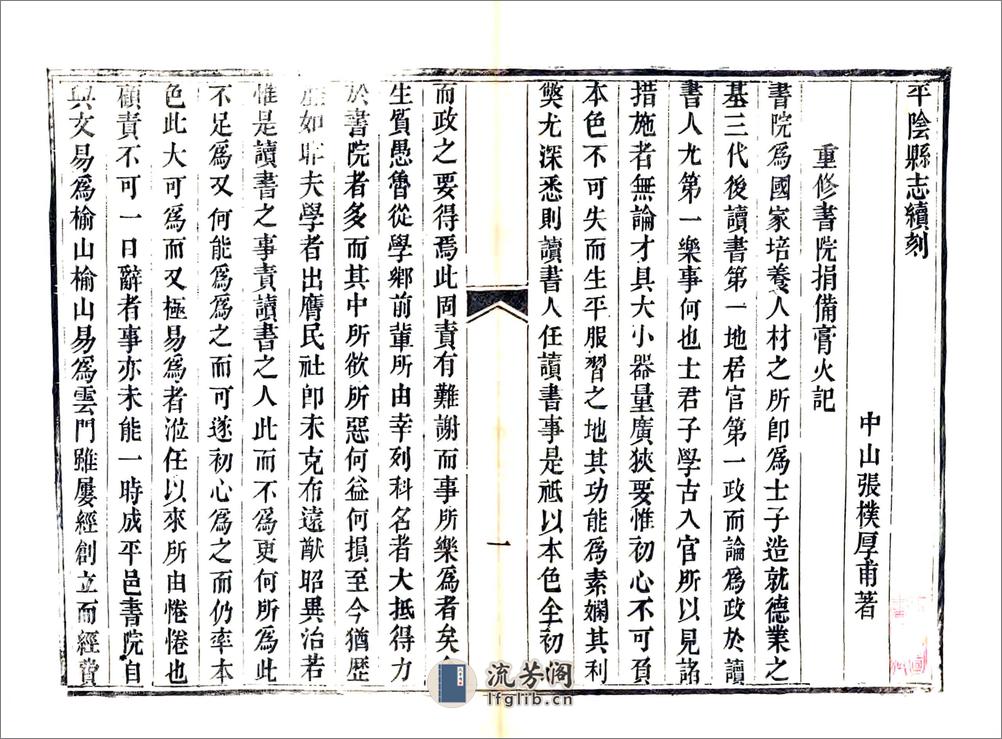 平陰縣志續刻
中山張樸厚甫著
重修書院捐備膏火記
書院爲國家培養人材之所卽爲士子造就德業之
基三代後讀書第一地居官第一政而論爲政於讀
書人尤第一樂事何也士君子學古入官所以見諸
措施者無論才具大小器量廣狹要惟初心不可負
本色不可失而生平服習之地其功能爲素嫻其利
獘尤深悉則讀書人任讀書事是祗以本色全初
而政之要得焉此固責有難謝而事所樂爲者矣
生質愚魯從學鄉前輩所由幸列科名者大抵得力
於書院者多而其中所欲所惡何益何損至今猶歷
如昨夫學者出膺民社卽未克布遠猷昭異治若
惟是讀書之事責讀書之人此而不爲更何所爲此
不足爲又何能爲爲之而可遂初心爲之而仍率本
色此大可爲而又極易爲者涖任以來所由惓惓也
顧責不可一日辭者事亦未能一時成平邑書院自
興文易爲榆山榆山易爲雲門雖屢經創立而經費
一
流芳阁
lfglib.cn